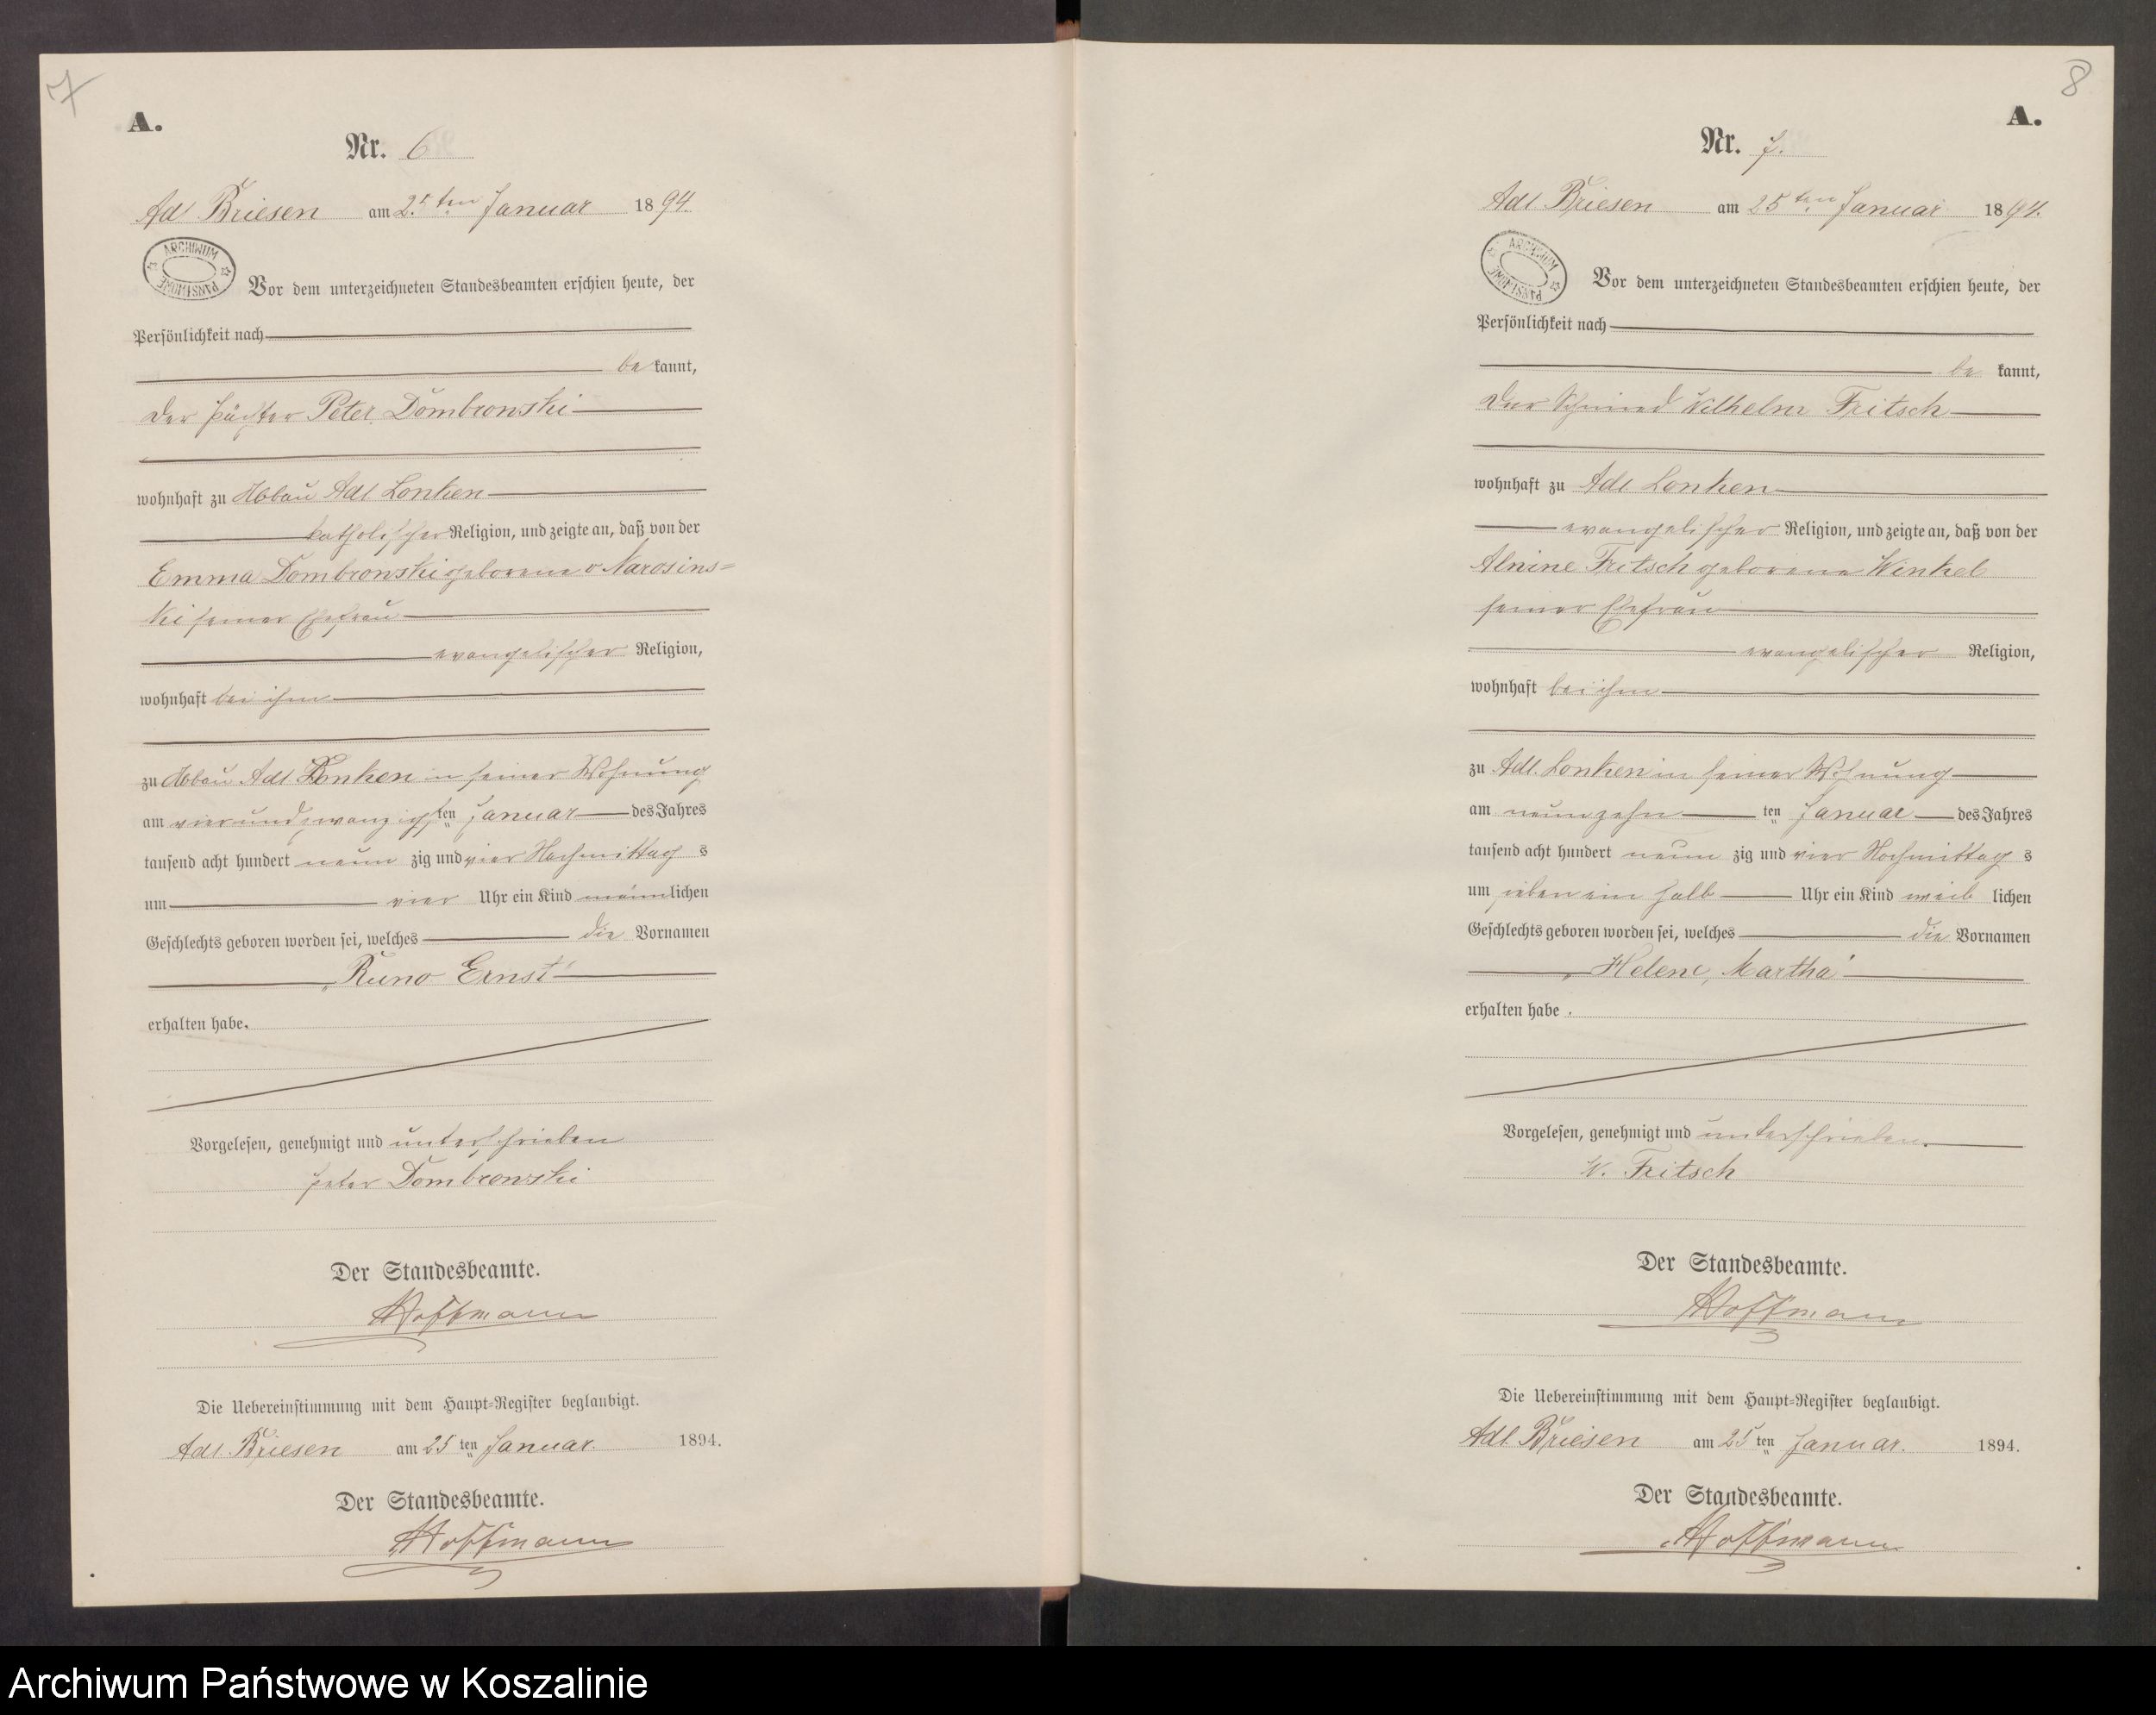 7
A.
Nr. 6
Adl Briesen am 25ten Januar 1894.
ARCHIWUM PAŃSTWOWE
Vor dem unterzeichneten Standesbeamten erschien heute, der
Persönlichkeit nach
bekannt,
der Pächter Peter Dombrowski
wohnhaft zu Abbau Adl Lonken
katholischer Religion, und zeigte an, daß von der
Emma Dombrowski geborene v Narosins=
ki seiner Ehefrau
evangelischer Religion,
wohnhaft bei ihm
zu Abbau Adl Lonken in seiner Wohnung
am vierundzwanzigsten Januar des Jahres
tausend acht hundert neunzig und vier Nachmittags
um vier Uhr ein Kind männlichen
Geschlechts geboren worden sei, welches die Vornamen
„Kuno Ernst“
erhalten habe.
Vorgelesen, genehmigt und unterschrieben
Peter Dombrowski
Der Standesbeamte.
Hoffmann
Die Uebereinstimmung mit dem Haupt-Register beglaubigt.
Adl Briesen am 25ten Januar. 1894.
Der Standesbeamte.
Hoffmann
8
A.
Nr. 7.
Adl Briesen am 25ten Januar 1894.
ARCHIWUM PAŃSTWOWE
Vor dem unterzeichneten Standesbeamten erschien heute, der
Persönlichkeit nach
bekannt,
der Schmied Wilhelm Fritsch
wohnhaft zu Adl Lonken
evangelischer Religion, und zeigte an, daß von der
Fritsch geborene Winkel
seiner Ehefrau
evangelischer Religion,
wohnhaft bei ihm
zu Adl. Lonken in seiner Wohnung
am neunzehnten Januar des Jahres
tausend acht hundert neunzig und vier Nachmittags
um sieben ein halb Uhr ein Kind weiblichen
Geschlechts geboren worden sei, welches die Vornamen
„Helene, Martha“
erhalten habe.
Vorgelesen, genehmigt und unterschrieben.
W. Fritsch
Der Standesbeamte.
Hoffmann
Die Uebereinstimmung mit dem Haupt-Register beglaubigt.
Adl Briesen am 25ten Januar. 1894.
Der Standesbeamte.
Hoffmann
Archiwum Państwowe w Koszalinie